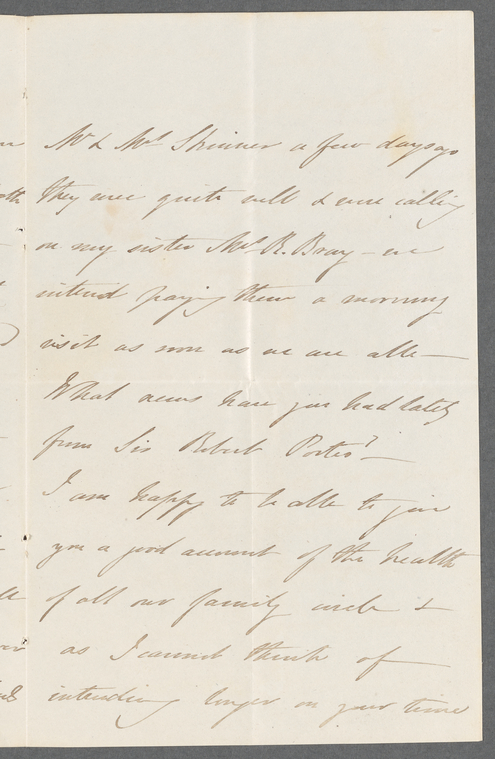 Mr & Mrs Skinner a few days ago
they were quite well & were calling
on my sister Mrs R. Bray - we
intend paying them a morning
visit as soon as we are able -
What news have you had lately
from Sir Robert Porter? -
I am happy to be able to give
you a good account of the health
of all our family circle &
as I cannot think of
intruding longer on your time